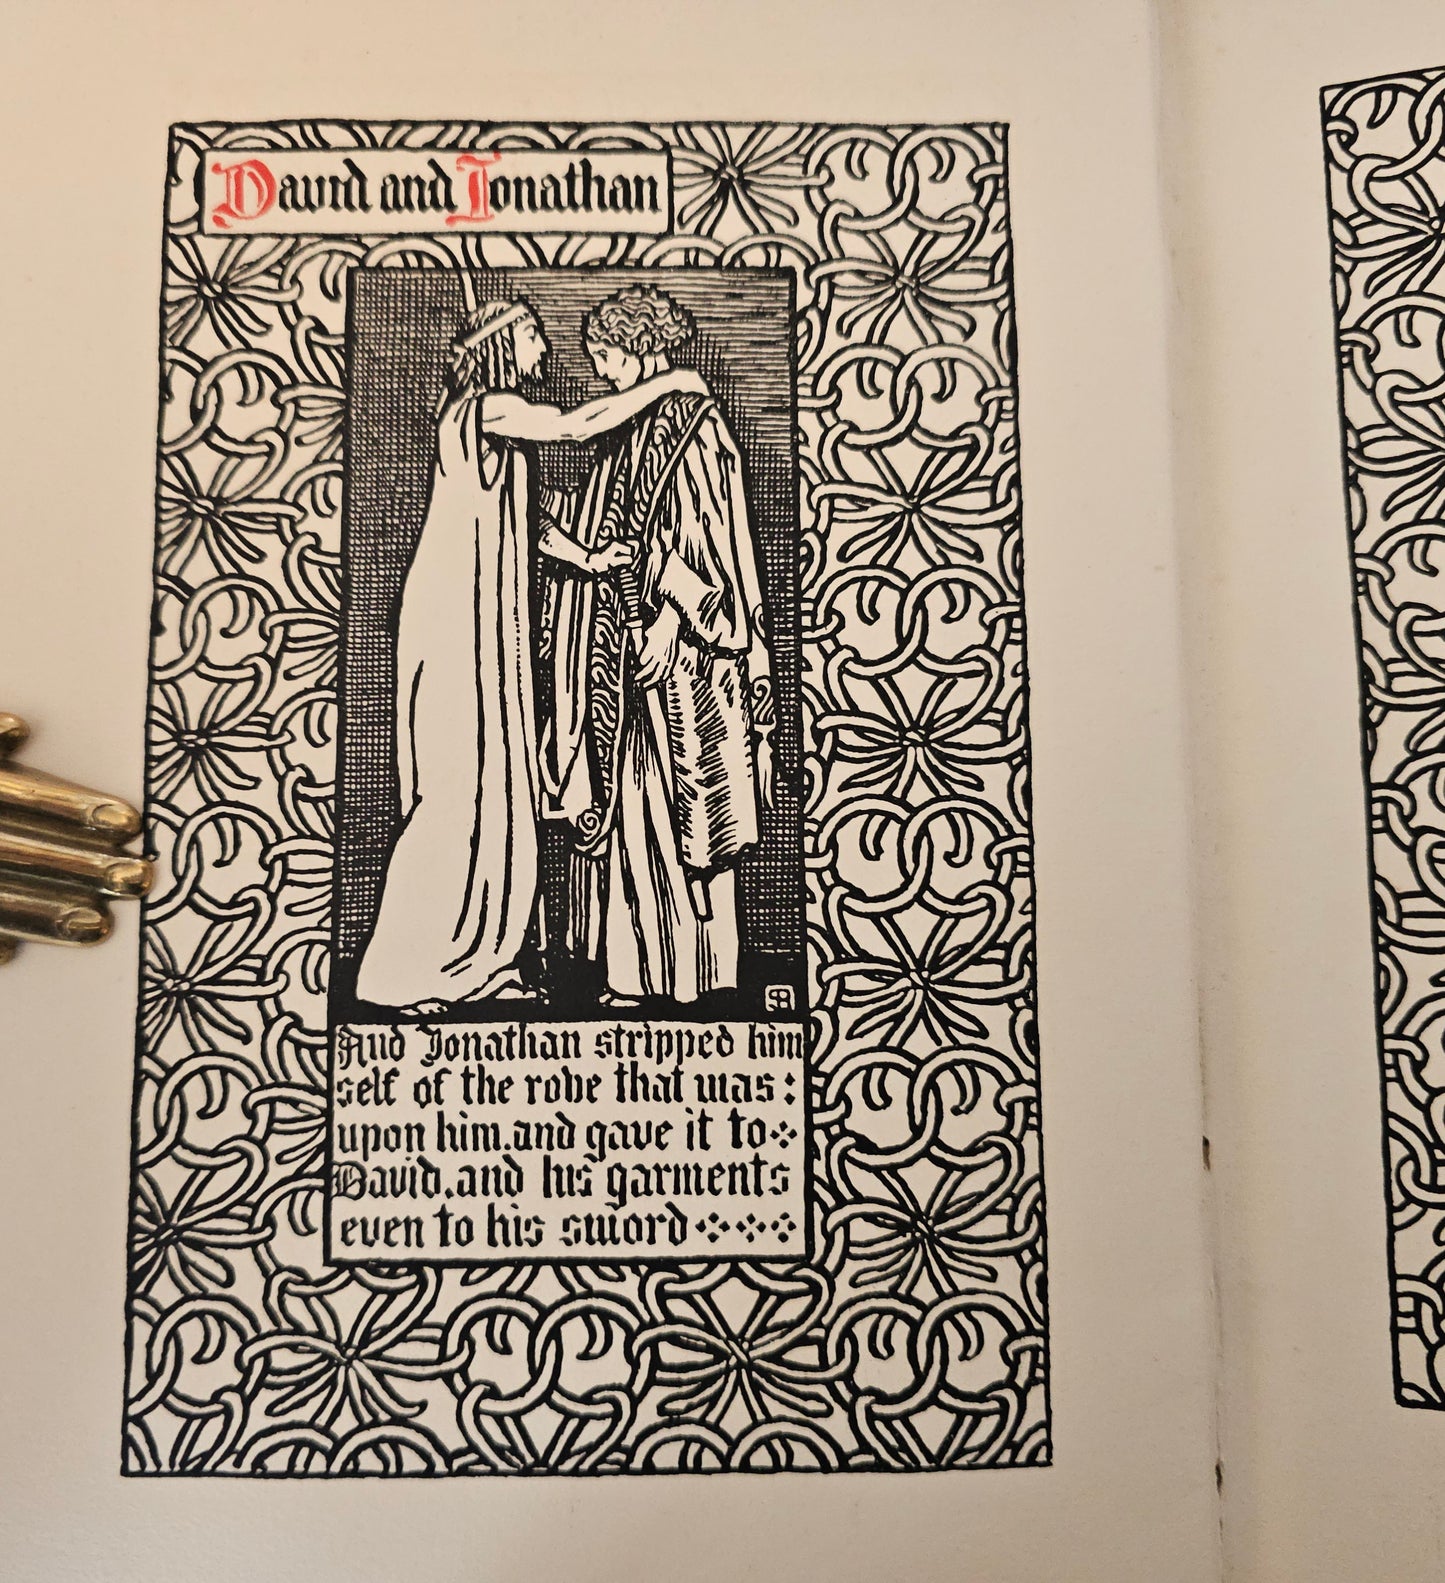 David and Jonathan
And Jonathan stripped him
self of the robe that was :
upon him. and gave it to
David. and his garments
even to his sword